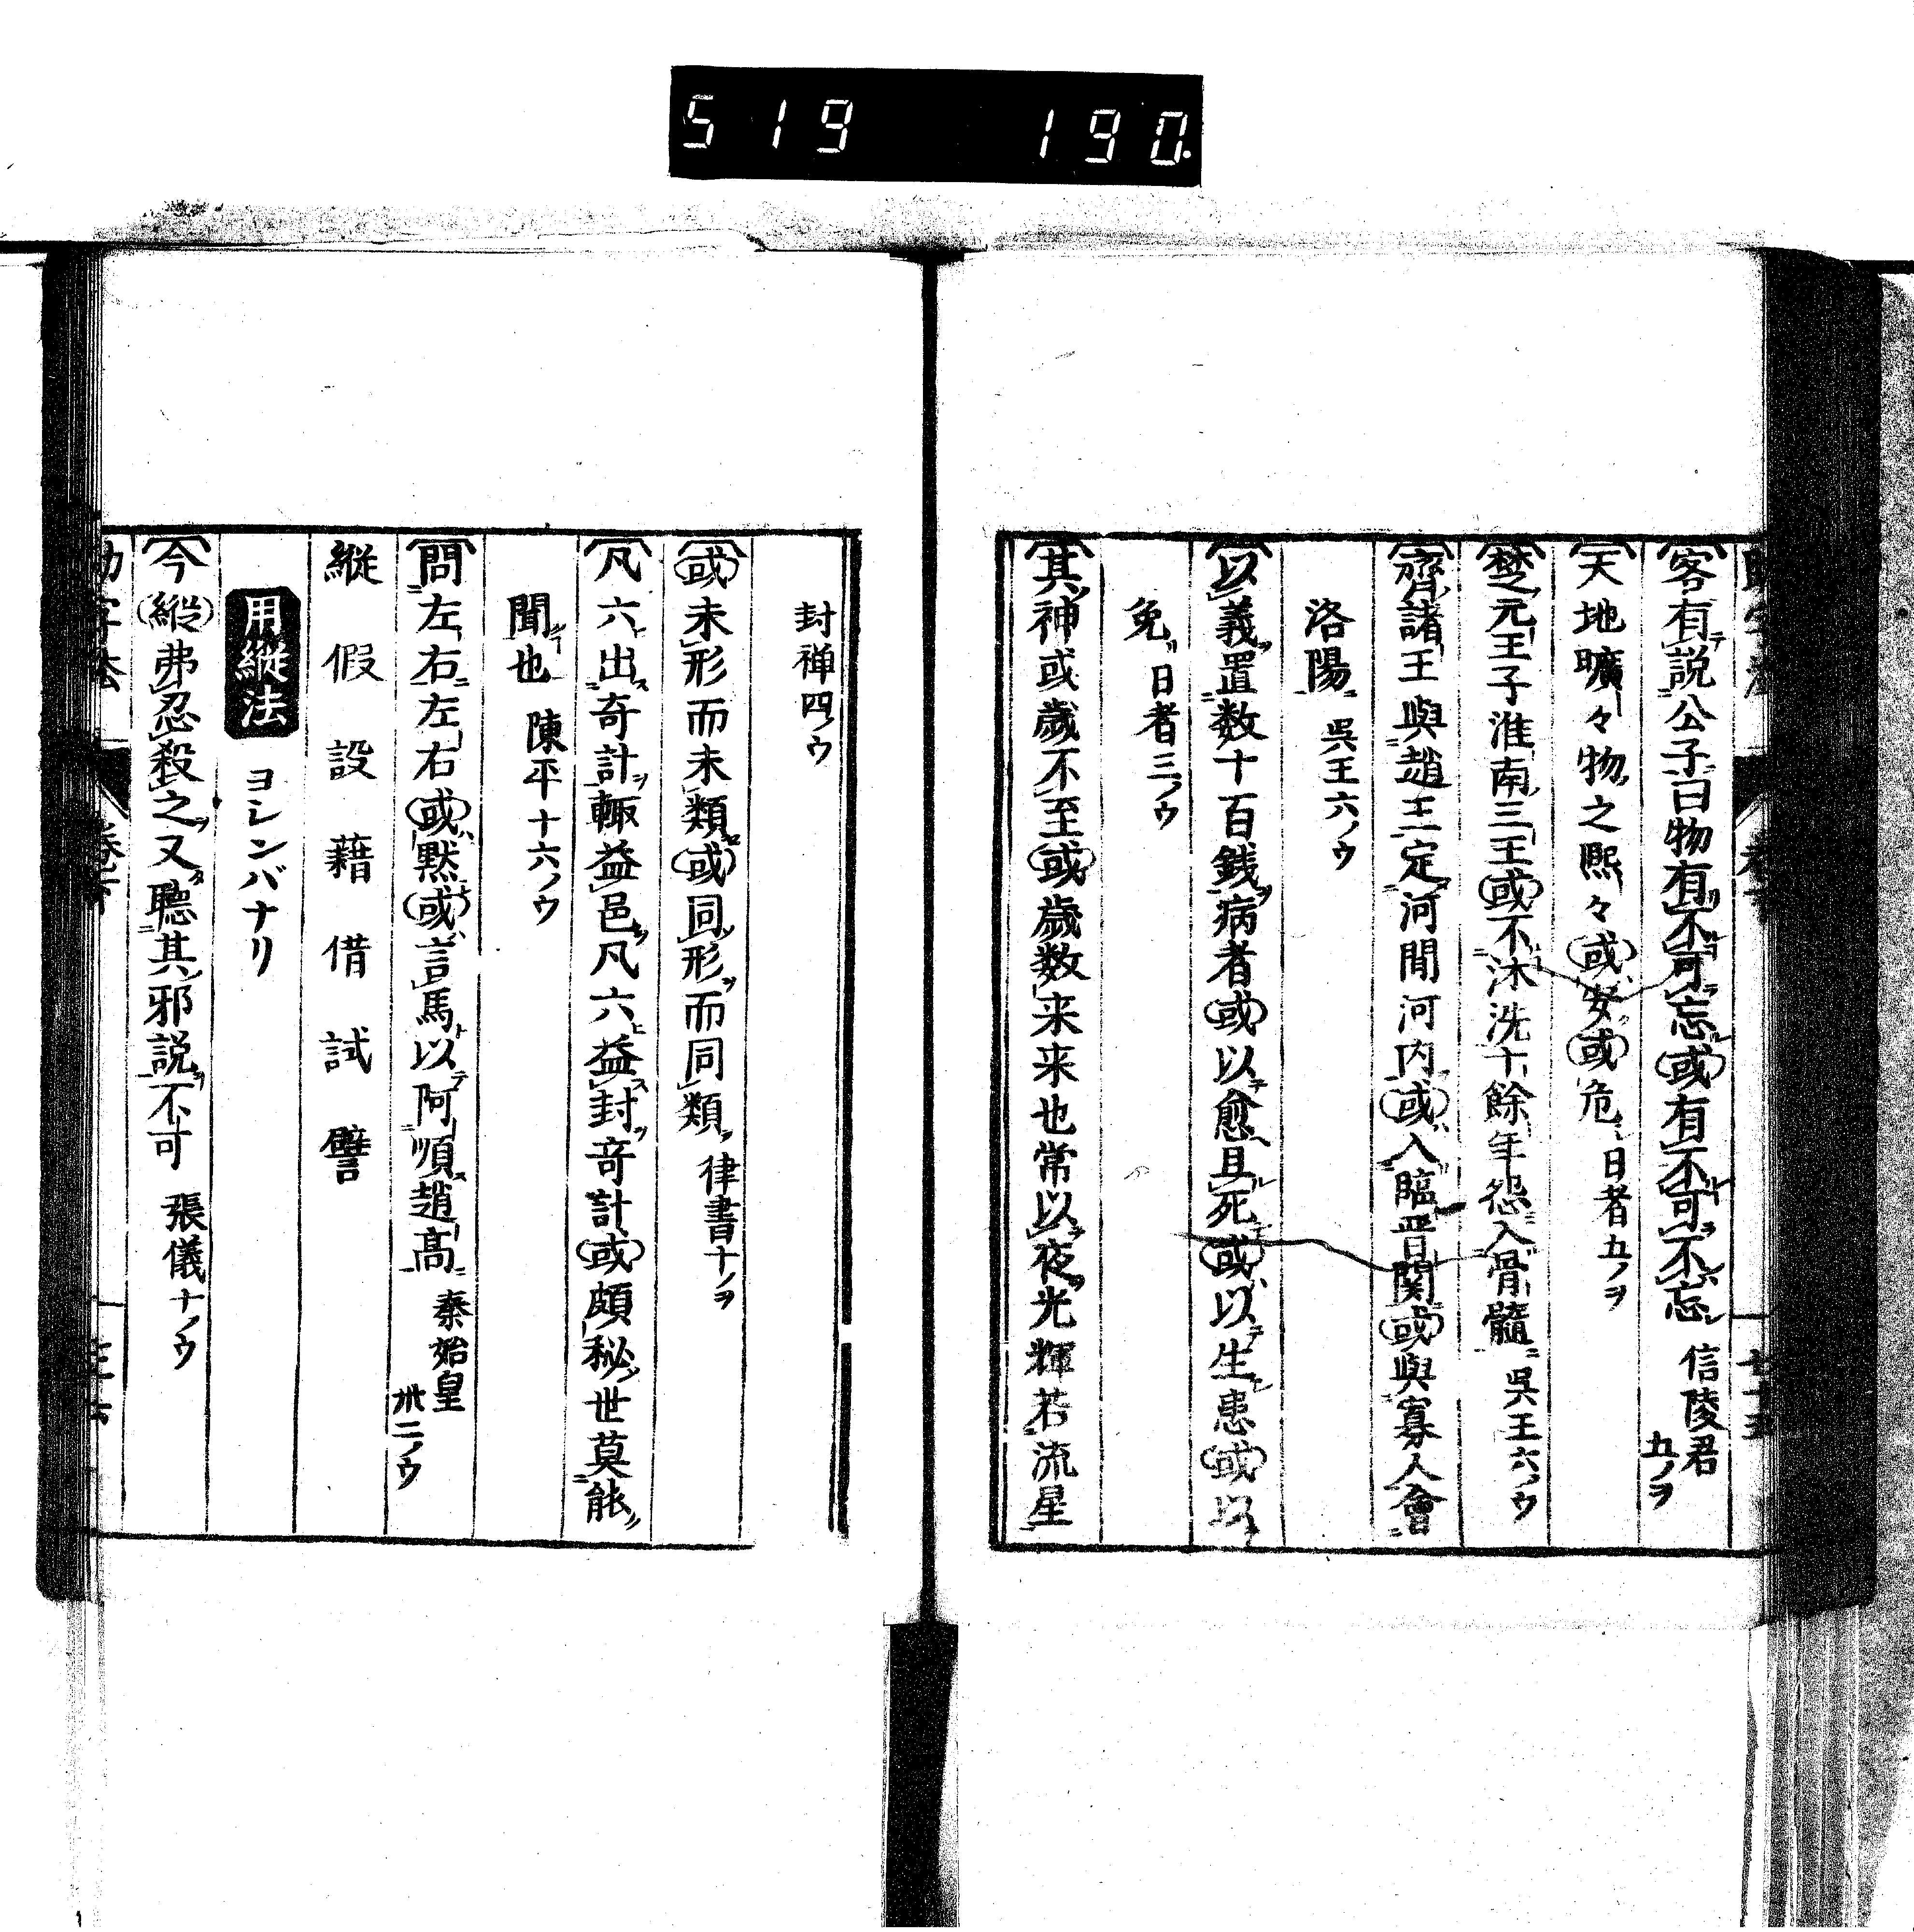 519 190.
客有説公子曰物有不可忘或有不可不忘 信陵君 九ノヲ
天地曠々物之熙々或安或危 日者五ノヲ
楚元王子淮南三王或不沐洗十餘年怨入骨髓 呉王六ノウ
齊諸王與趙王定河間河内或入臨晋関或與寡人會
洛陽 呉王六ノウ
以義置数十百銭病者或以愈且死或以生患或以
免 日者三ノウ
其神或歳不至或歳数来来也常以夜光輝若流星
封禅四ノウ
或未形而未類或同形而同類 律書十ノヲ
凡六出奇計輙益邑凡六益封奇計或頗秘世莫能
聞也 陳平十六ノウ
問左右左右或黙或言馬以阿順趙高 秦始皇 卅二ノウ
縦 假 設 藉 借 試 譬
用縦法 ヨレンバナリ
今縦弗忍殺之又聴其邪説不可 張儀十ノウ